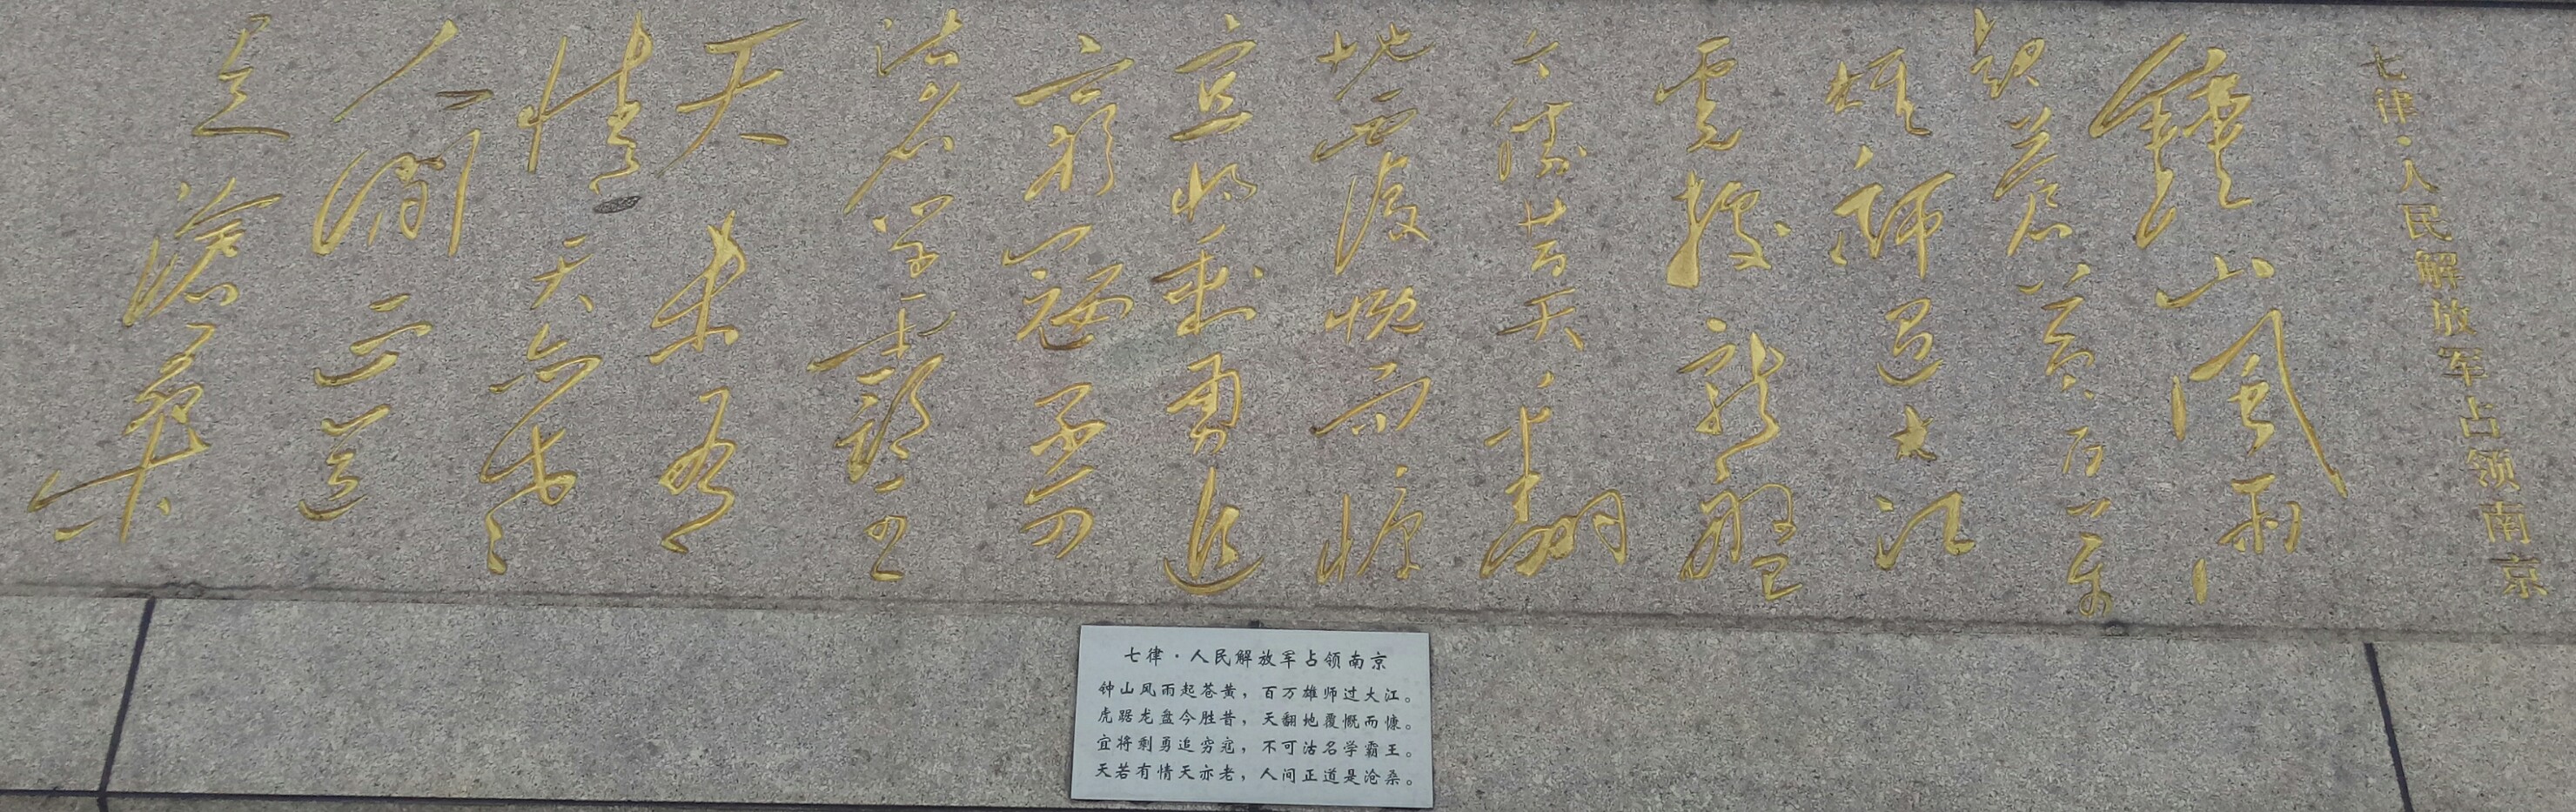 七律·人民解放军占领南京
鍾山風雨
起蒼黃百万
雄師过大江
虎踞龍盤
今勝昔天翻
地覆慨而慷
宜将剩勇追
穷寇不可
沽名学霸王
天若有
情天亦老
人間正道
是滄桑
七律·人民解放军占领南京
钟山风雨起苍黄，百万雄师过大江。
虎踞龙盘今胜昔，天翻地覆慨而慷。
宜将剩勇追穷寇，不可沽名学霸王。
天若有情天亦老，人间正道是沧桑。